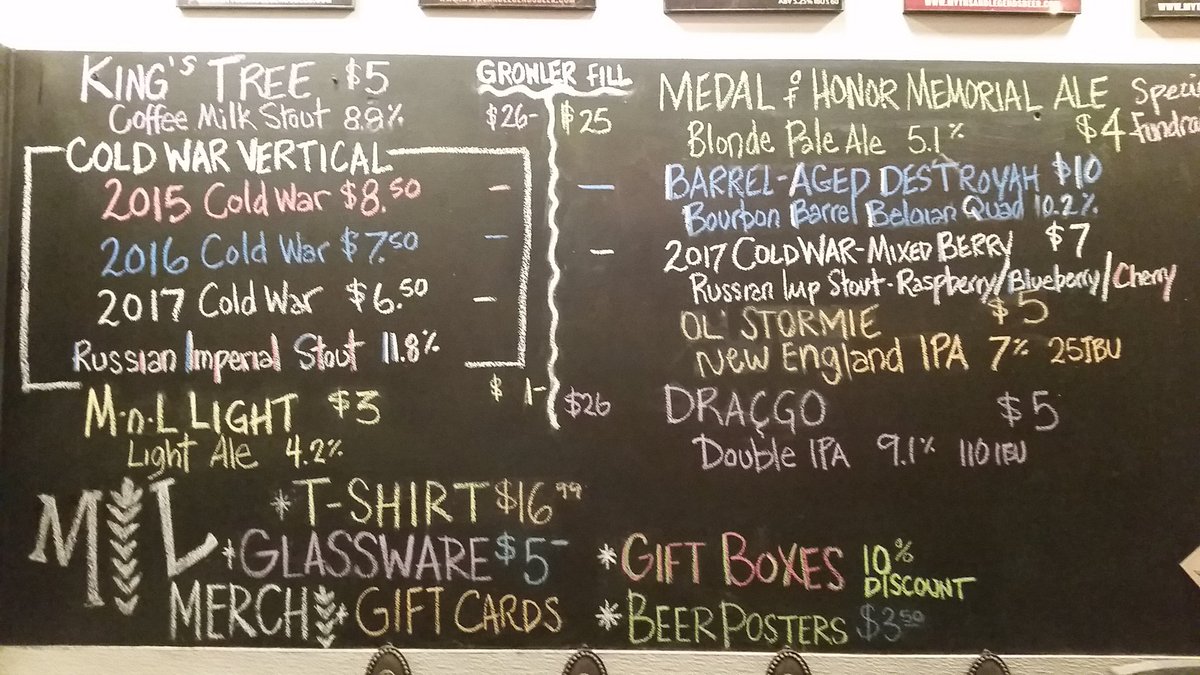 WWW.MYTHSANDLEGENDSBEER.COM
ABV 5.25% IBU 60
WWW.MYTHSANDLEGENDSBEER.COM
KING'S TREE $5
Coffee Milk Stout 8.8%
COLD WAR VERTICAL
2015 Cold War $8.50 -
2016 Cold War $7.50 -
2017 Cold War $6.50 -
Russian Imperial Stout 11.8%
M.n.L LIGHT $3
Light Ale 4.2%
GROWLER FILL
$26- $25
$ 1- $26
MEDAL of HONOR MEMORIAL ALE
Blonde Pale Ale 5.1% $4
BARREL-AGED DESTROYAH $10
Bourbon Barrel Belgian Quad 10.2%
2017 COLD WAR-MIXED BERRY $7
Russian Imp Stout-Raspberry/Blueberry/Cherry
OL' STORMIE $5
NEW ENGLAND IPA 7% 25IBU
DRAÇGO $5
Double IPA 9.1% 110 IBU
M L
MERCH
*T-SHIRT $16.99
*GLASSWARE $5-
*GIFT CARDS
*GIFT BOXES 10% DISCOUNT
*BEER POSTERS $3.50